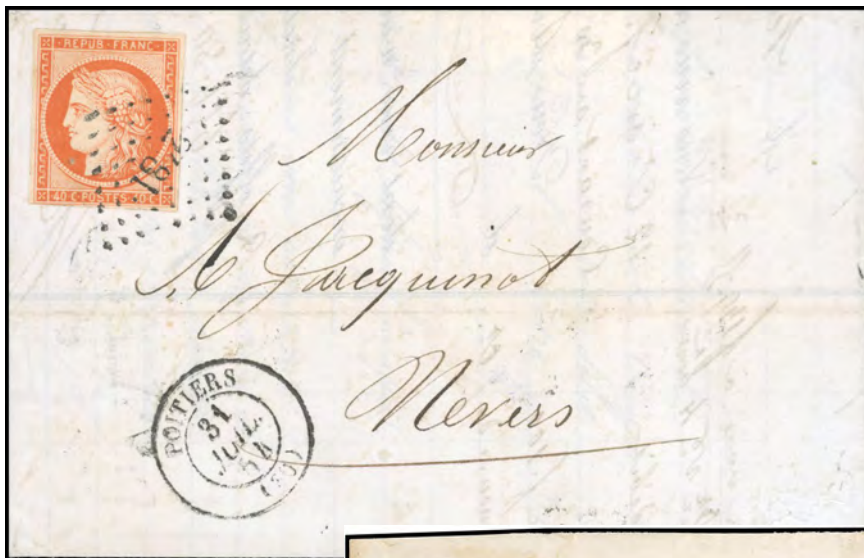 REPUB·FRANC
40 C·POSTES·40 C
Monsieur
A Jacquinot
Nevers
POITIERS
31
JUIL.
54